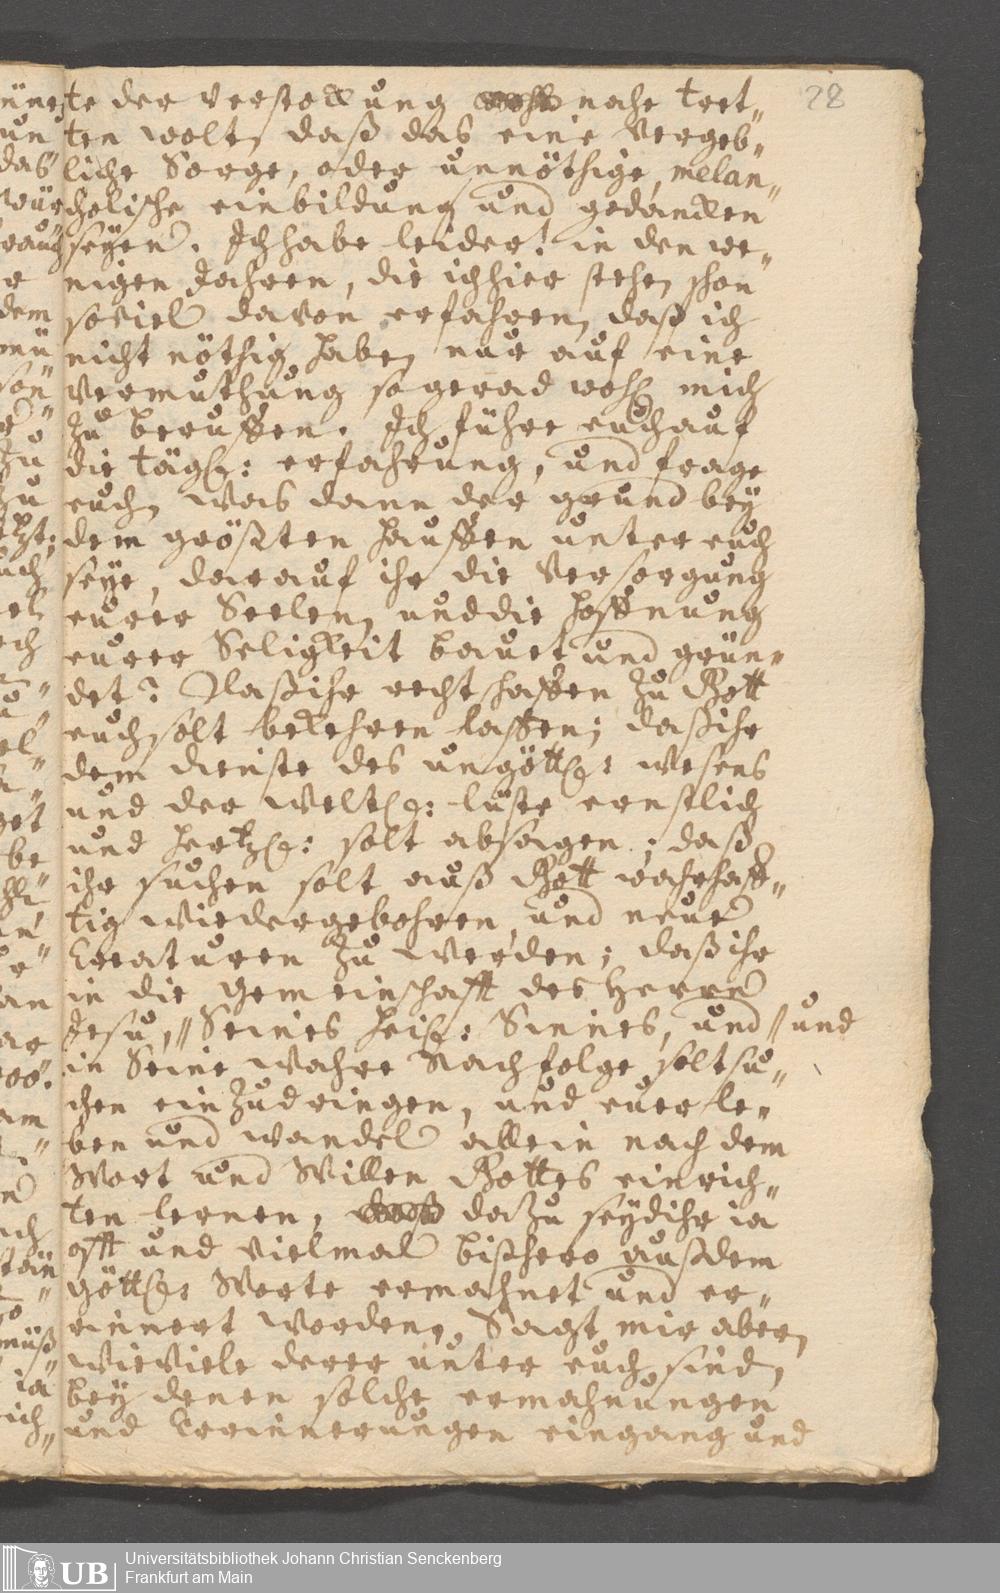 28
te der verstockung nahe tret„
ten wolt, daß das eine vergeb„
liche Sorge, oder unnöthige, melan„
cholische einbildung und gedancken
seyen. Ich habe leider! in den we„
nigen Jahren, die ich hier stehe, schon
soviel davon erfahren, daß ich
nicht nöthig habe, nur auf eine
Vermuthung so gerad mich
zu beruffen. Ich führe euch auf
die tägl: erfahrung, und frage
euch, was dann der grund bey
dem größten hauffen unter euch
seye, darauf ihr die Versorgung
eurer Seelen, und die hoffnung
eurer Seligkeit bauet und grün„
det? Daß ihr rechtschaffen zu Gott
euch solt bekehren lassen; daß ihr
dem dienste des ungöttl: wesens
und der weltl: lüste ernstlich
und hertzl: solt absagen; daß
ihr suchen solt auß Gott wahrhaff„
tig wiedergebohren, und neue
Creaturen zu werden; daß ihr
in die Gemeinschafft des Herrn
Jesu, // Seines heil: Sinnes, und // und
in Seine wahre Nachfolge solt su„
chen einzudringen, und euer le„
ben und wandel allein nach dem
Wort und Willen Gottes einrich„
ten lernen, dazu seyd ihr ia
offt und vielmal bißhero auß dem
göttl: Worte ermahnet und er„
innert worden. Sagt mir aber,
wie viele derer unter euch sind,
bey denen solche ermahnungen
und Erinnerungen eingang und
UB
Universitätsbibliothek Johann Christian Senckenberg
Frankfurt am Main